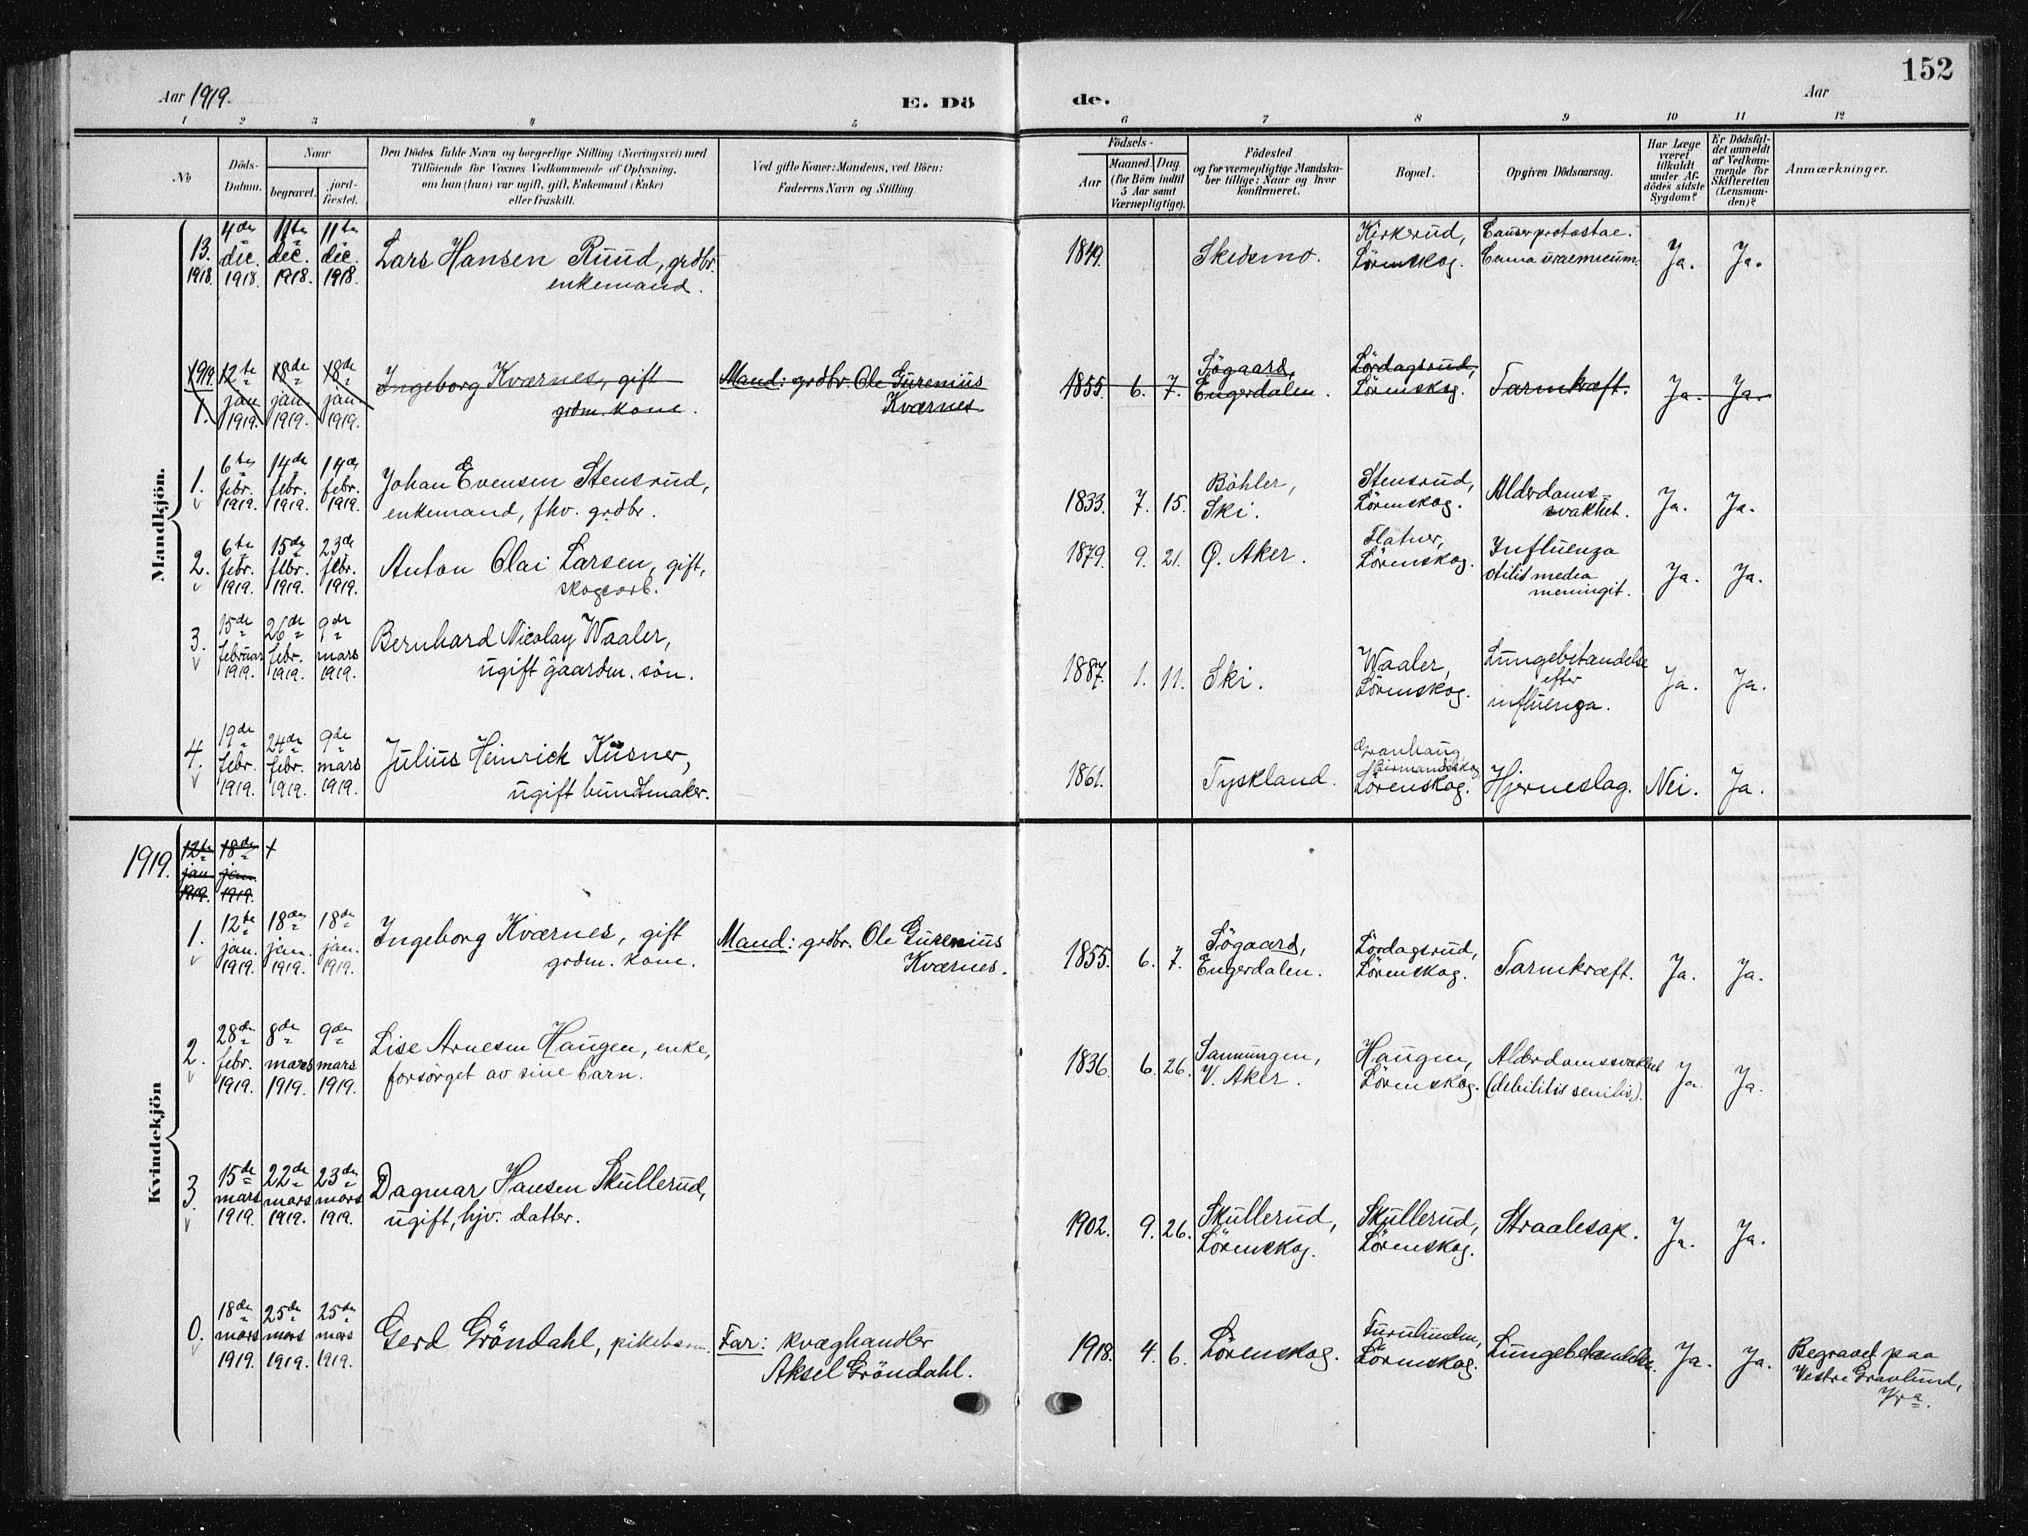 152
Aar 1919.
E. Dö
de.
Aar
1 2 3 4 5 6 7 8 9 10 11 12
No
Döds-
Datum.
Naar
begravet.
jord-
fæstet.
Den Dödes fulde Navn og borgerlige Stilling (Næringsvei) med
Tilföiende for Voxnes Vedkommende af Oplysning,
om han (hun) var ugift, gift, Enkemand (Enke)
eller fraskilt.
Ved gifte Koner: Mandens, ved Börn:
Faderens Navn og Stilling.
Födsels-
Aar
Maaned. Dag.
(for Börn indtil
5 Aar samt
Værnepligtige).
Födested
og for værnepligtige Mandska-
ber tillige: Naar og hvor
konfirmeret.
Bopæl.
Opgiven Dödsaarsag.
Har Læge
været
tilkaldt
under Af-
dödes sidste
Sygdom?
Er Dödsfal-
det anmeldt
af Vedkom-
mende for
Skifteretten
(Lensman-
den)?
Anmærkninger.
Mandkjön.
13. 1918. 4de dec. 1918. 11te dec. 1918. 11te dec. 1918.
Lars Hansen Ruud, grdbr.
enkemand.
1849. Skedsmo.
Kirkerud,
Lörenskog.
Cancer protastae.
Coma uraemicum.
Ja. Ja.
1919. 1. 12te jan. 1919. 18de jan. 1919. 18de jan. 1919.
Ingeborg Kværnes, gift
grdm. kone.
Mand: grdbr. Ole Gurenius
Kværnes.
1855. 6. 7.
Sögaard,
Engerdalen.
Lördagsrud,
Lörenskog.
Tarmkræft.
Ja. Ja.
1. 6te febr. 1919. 14de febr. 1919. 14de febr. 1919.
Johan Evensen Stensrud,
enkemand, fhv. grdbr.
1833. 7. 15.
Böhler,
Ski.
Stensrud,
Lörenskog.
Alderdoms-
svakhet.
Ja. Ja.
2. 6te febr. 1919. 15de febr. 1919. 23de febr. 1919.
Anton Olai Larsen, gift,
skogsarb.
1879. 9. 21. Ø. Aker.
Flatner,
Lörenskog.
Influenza
otitis media
meningit.
Ja. Ja.
3. 15de februar 1919. 26de febr. 1919. 9de mars 1919.
Bernhard Nicolay Waaler,
ugift gaardm. sön.
1887. 1. 11. Ski.
Waaler,
Lörenskog.
Lungebetændelse
efter
influenza.
Ja. Ja.
4. 19de febr. 1919. 24de febr. 1919. 9de mars 1919.
Julius Heinrick Küsner,
ugift buntmaker.
1861. Tyskland.
Granhaug
Lörenskog.
Hjerneslag. Nei. Ja.
Kvindekjön
1919. 12te jan. 1919. 18de jan. 1919.
1. 12te jan. 1919. 18de jan. 1919. 18de jan. 1919.
Ingeborg Kværnes, gift
grdm. kone.
Mand: grdbr. Ole Gurenius
Kværnes.
1855. 6. 7.
Sögaard,
Engerdalen.
Lördagsrud,
Lörenskog.
Tarmkræft. Ja. Ja.
2. 28de febr. 1919. 8de mars 1919. 9de mars 1919.
Lise Arnesen Haugen, enke,
forsörget av sine barn.
1836. 6. 26.
Sannungen,
V. Aker.
Haugen,
Lörenskog.
Alderdomssvakhet
(debilitis senilis).
Ja. Ja.
3. 15de mars 1919. 22de mars 1919. 23de mars 1919.
Dagmar Hansen Skullerud,
ugift, hjv. datter.
1902. 9. 26.
Skullerud,
Lörenskog.
Skullerud,
Lörenskog.
Straalesop.
Ja. Ja.
0. 18de mars 1919. 25de mars 1919. 25de mars 1919.
Gerd Gröndahl, pikebarn.
Far: kvæghandler
Aksel Gröndahl.
1918. 4. 6. Lörenskog.
Furulunden,
Lörenskog.
Lungebetændelse.
Ja. Ja.
Begravet paa
Vestre Gravlund,
Kra.